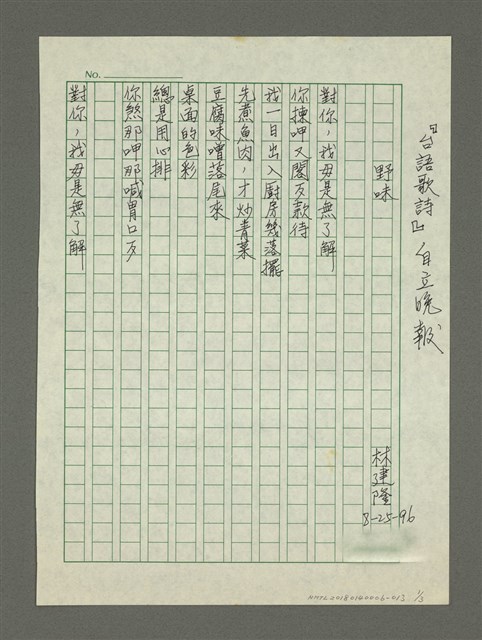 『台語歌詩』自立晚報
野味
林建隆
8-25-96
No.
對你，我毋是無了解
你揀呷又閣歹款待
我一日出入廚房幾落擺
先煮魚肉，才炒青菜
豆腐味噌落尾來
桌面的色彩
總是用心排
你煞那呷那喊胃口歹
對你，我毋是無了解
NMTL20180140006-013 1/3